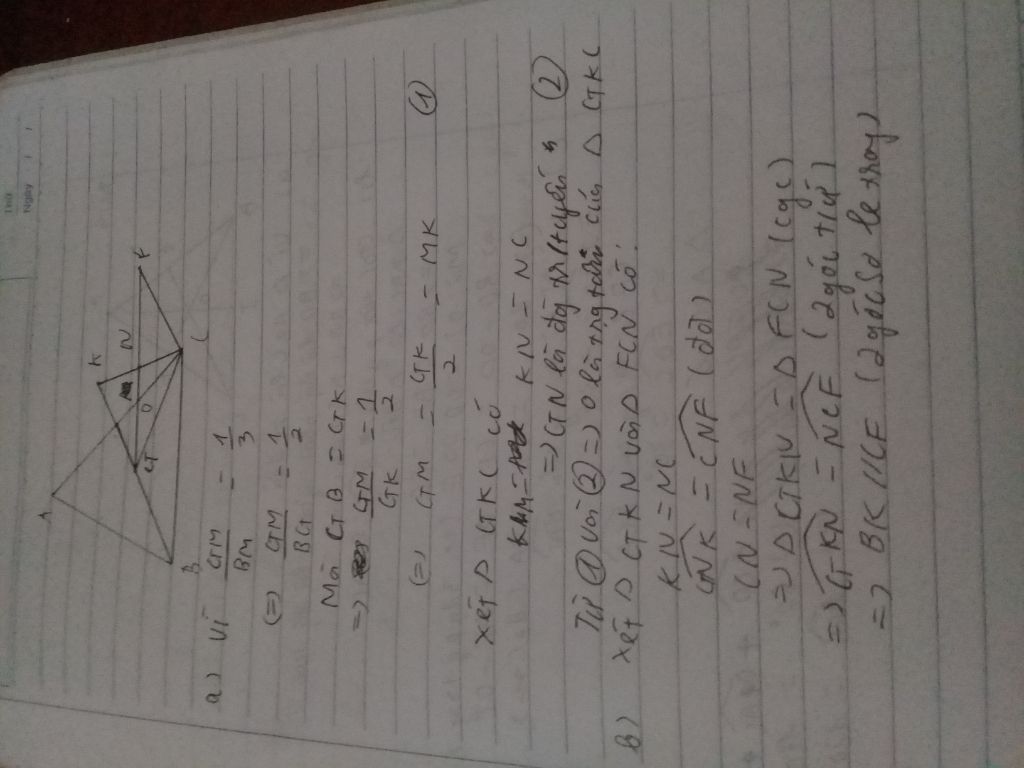 Thứ
Ngày / /
A
K
N
F
G
O
B
C
a) Vì GM/BM = 1/3
(=) GM/BG = 1/2
Mà GB = GK
=) GM/GK = 1/2
(=) GM = GK/2 = MK (1)
xét Δ GKC có
KN = NC
=) GN là đg tr/tuyến (2)
Từ (1) và (2) =) O là trọng tâm của Δ GKC
B) xét Δ GKN và Δ FCN có:
KN = NC
GNK = CNF (đđ)
GN = NF
=) Δ GKN = Δ FCN (cgc)
=) GKN = NCF (2 góc t/ứ)
=) BK // CF (2 góc so le trog)